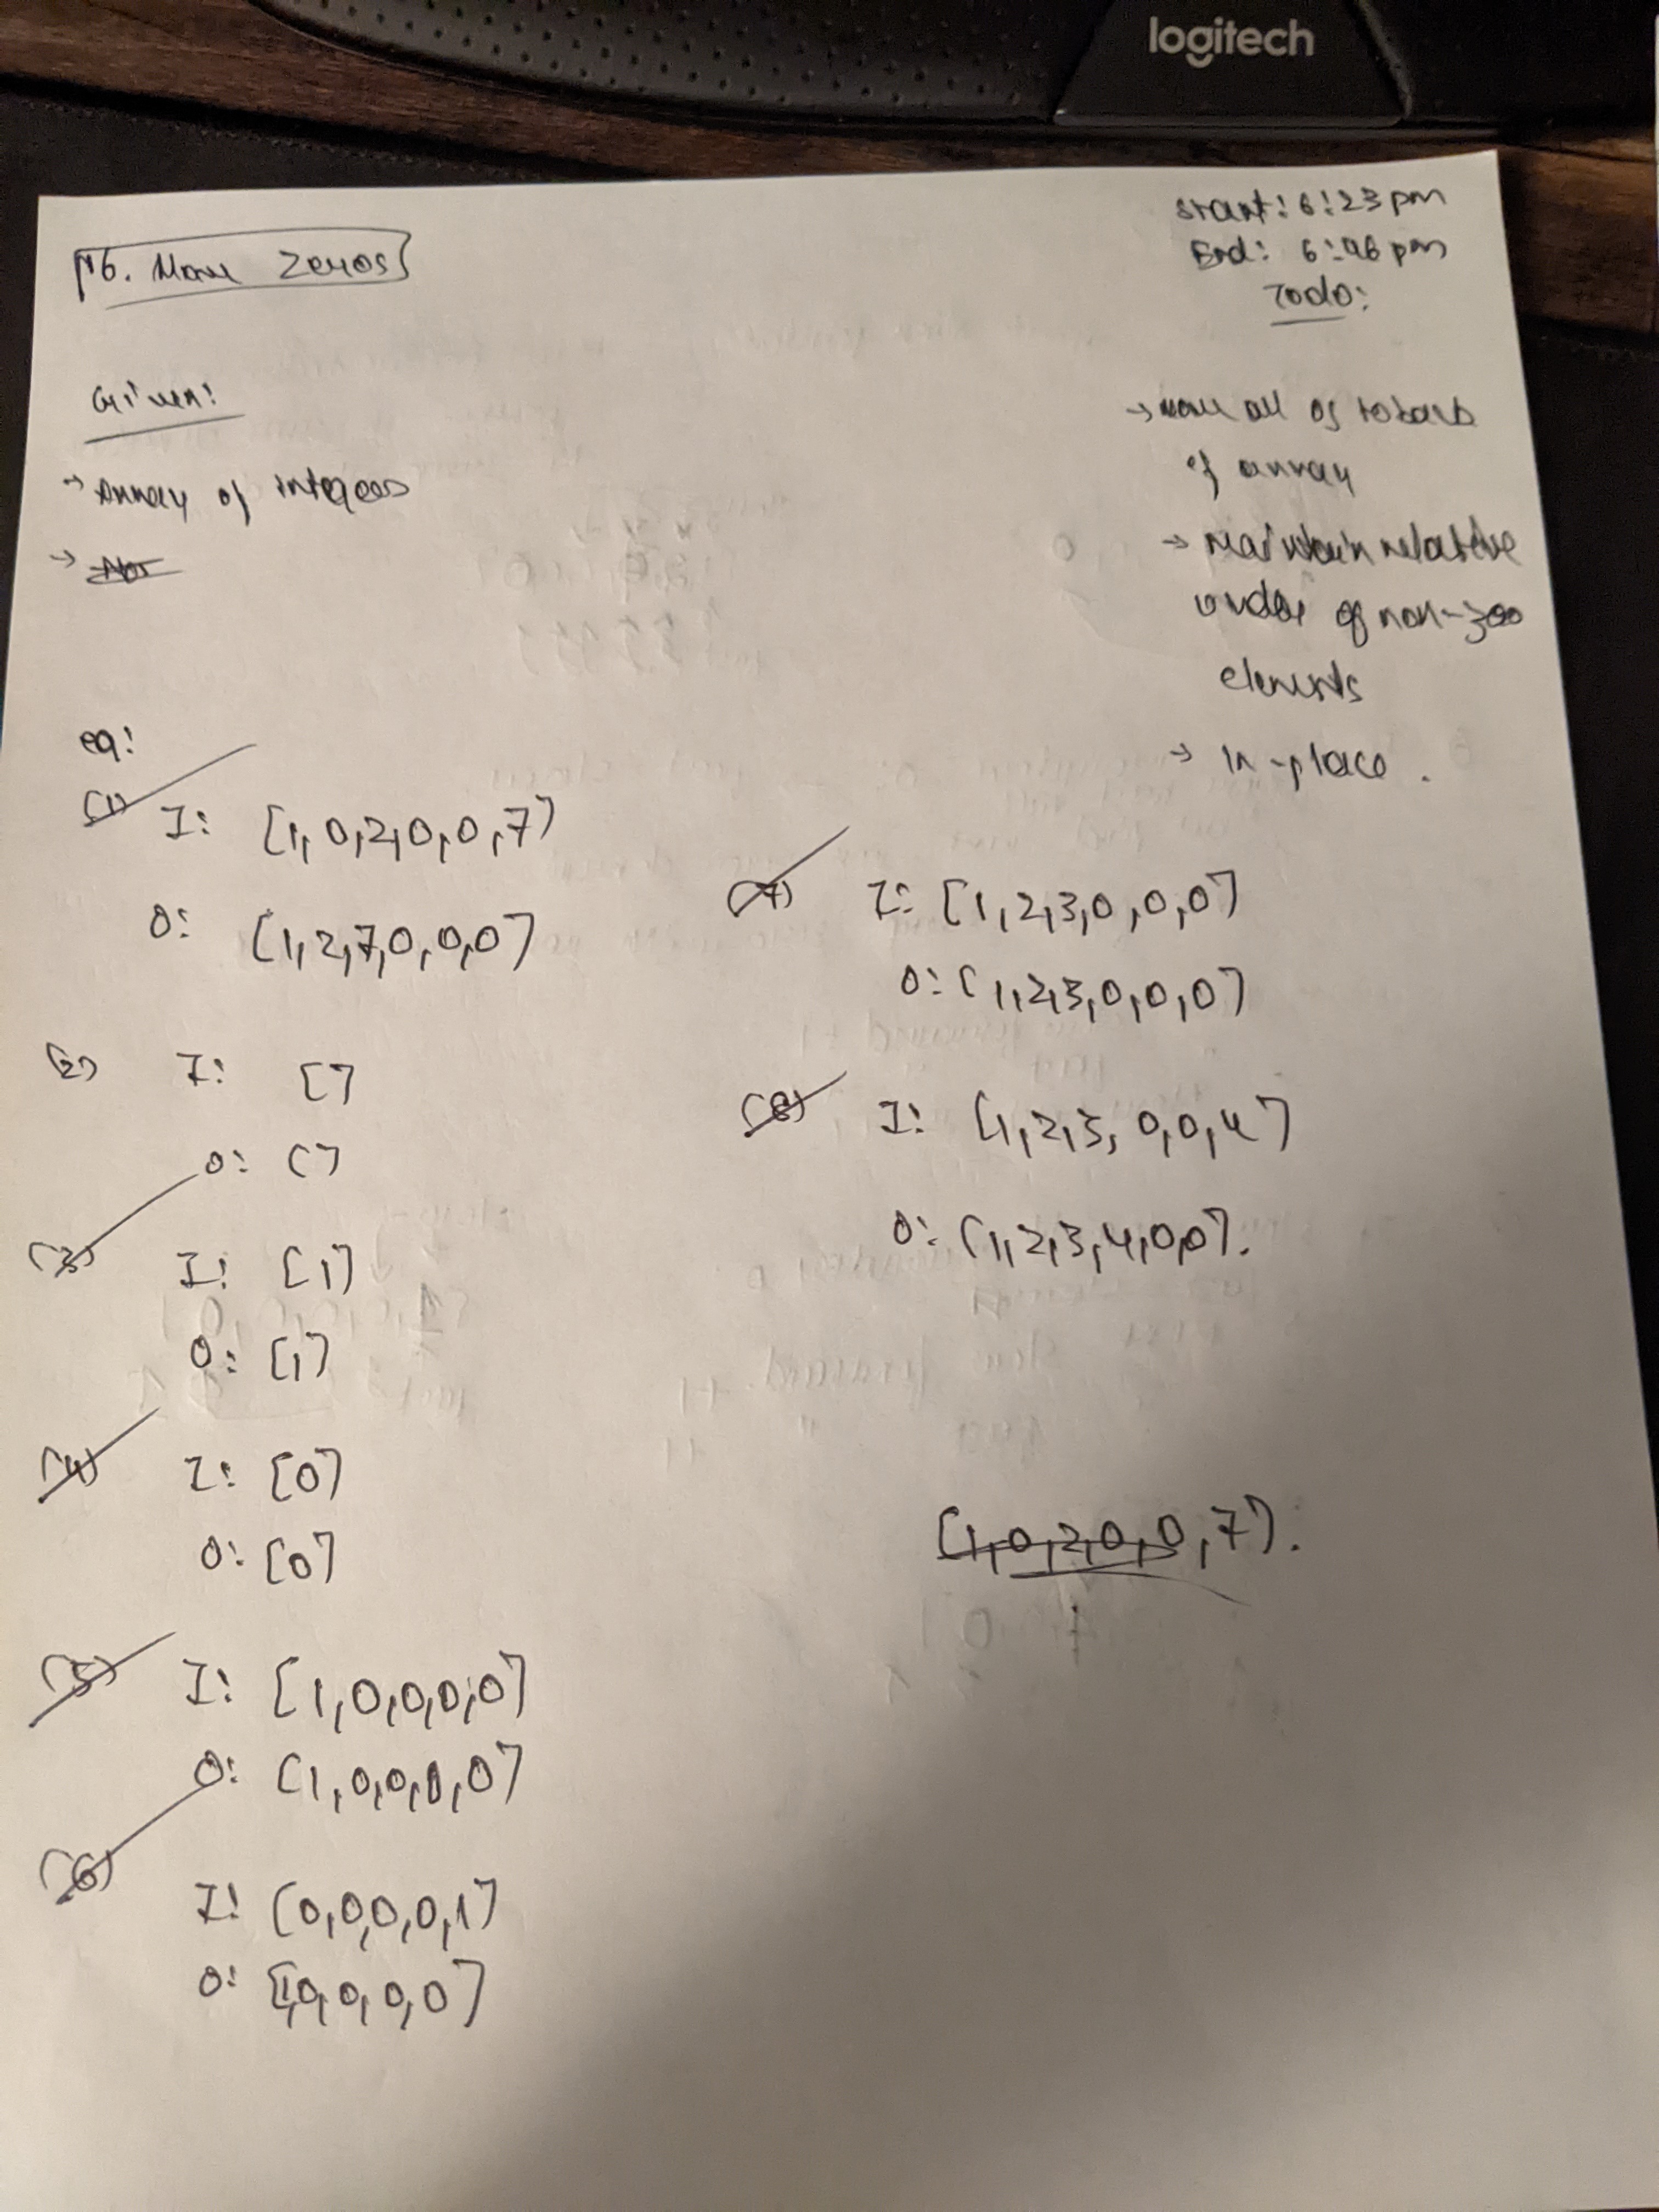 logitech
P6. Move Zeros
Start: 6:23 pm
End: 6:46 pm
Todo:
Given:
→ Array of integers
→ Not
→ Move all 0s to back
of array
→ Maintain relative
order of non-zero
elements
→ In-place.
eg:
(1) I: [1,0,2,0,0,7]
O: [1,2,7,0,0,0]
(2) I: []
O: []
(3) I: [1]
O: [1]
(4) I: [0]
O: [0]
(5) I: [1,0,0,0,0]
O: [1,0,0,0,0]
(6) I: [0,0,0,0,1]
O: [1,0,0,0,0]
(7) I: [1,2,3,0,0,0]
O: [1,2,3,0,0,0]
(8) I: [1,2,3,0,0,4]
O: [1,2,3,4,0,0].
[1,0,2,0,0,7].